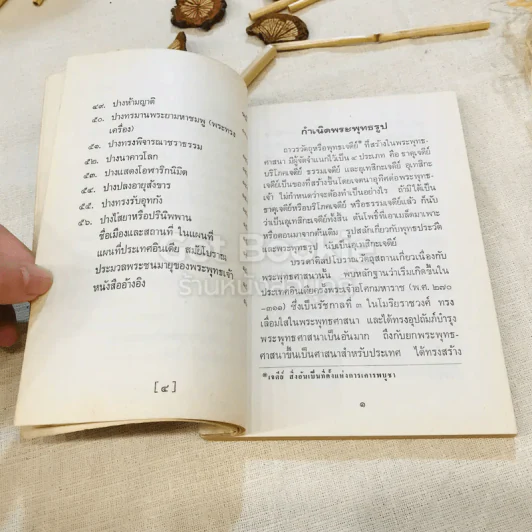 ๔๙. ปางห้ามญาติ
๕๐. ปางทรมานพระยามหาชมพู (พระทรง
เครื่อง)
๕๑. ปางทรงพิจารณาชราธรรม
๕๒. ปางนาคาวโลก
๕๓. ปางแสดงโอฬาริกนิมิต
๕๔. ปางปลงอายุสังขาร
๕๕. ปางทรงรับอุทกัง
๕๖. ปางไสยาหรือปรินิพพาน
ชื่อเมืองและสถานที่ ในแผนที่
แผนที่ประเทศอินเดีย สมัยโบราณ
ประมวลพระชนมายุของพระพุทธเจ้า
หนังสืออ้างอิง
[ ๔ ]
กำเนิดพระพุทธรูป
ถาวรวัตถุหรือพุทธเจดีย์* ที่สร้างในพระพุทธ-
ศาสนา มีผู้จัดจำแนกไว้เป็น ๔ ประเภท คือ ธาตุเจดีย์
บริโภคเจดีย์ ธรรมเจดีย์ และอุเทสิกเจดีย์ อุเทสิกะ
เจดีย์เป็นของที่สร้างขึ้นโดยเจตนาอุทิศต่อพระพุทธ-
เจ้า ไม่กำหนดว่าจะต้องทำเป็นอย่างไร ถ้ามิได้เป็น
ธาตุเจดีย์หรือบริโภคเจดีย์ หรือธรรมเจดีย์แล้ว ก็นับ
เป็นอุเทสิกะเจดีย์ทั้งสิ้น ต้นโพธิ์ที่เอาเมล็ดมาเพาะ
หรือตอนมาจากต้นเดิม รูปสลักเกี่ยวกับพุทธประวัติ
และพระพุทธรูป นับเป็นอุเทสิกะเจดีย์
บรรดาศิลปโบราณวัตถุสถานเกี่ยวเนื่องกับ
พระพุทธศาสนานั้น พบหลักฐานว่าเริ่มเกิดขึ้นใน
ประเทศอินเดียครั้งพระเจ้าอโศกมหาราช (พ.ศ. ๒๗๐
-๓๑๑) ซึ่งเป็นรัชกาลที่ ๓ ในโมริยราชวงศ์ ทรง
เลื่อมใสในพระพุทธศาสนา และได้ทรงอุปถัมภ์บำรุง
พระพุทธศาสนาเป็นอันมาก ถึงกับยกพระพุทธ-
ศาสนาขึ้นเป็นศาสนาสำหรับประเทศ ได้ทรงสร้าง
*เจดีย์ สิ่งอันเป็นที่ตั้งแห่งการเคารพบูชา
๑